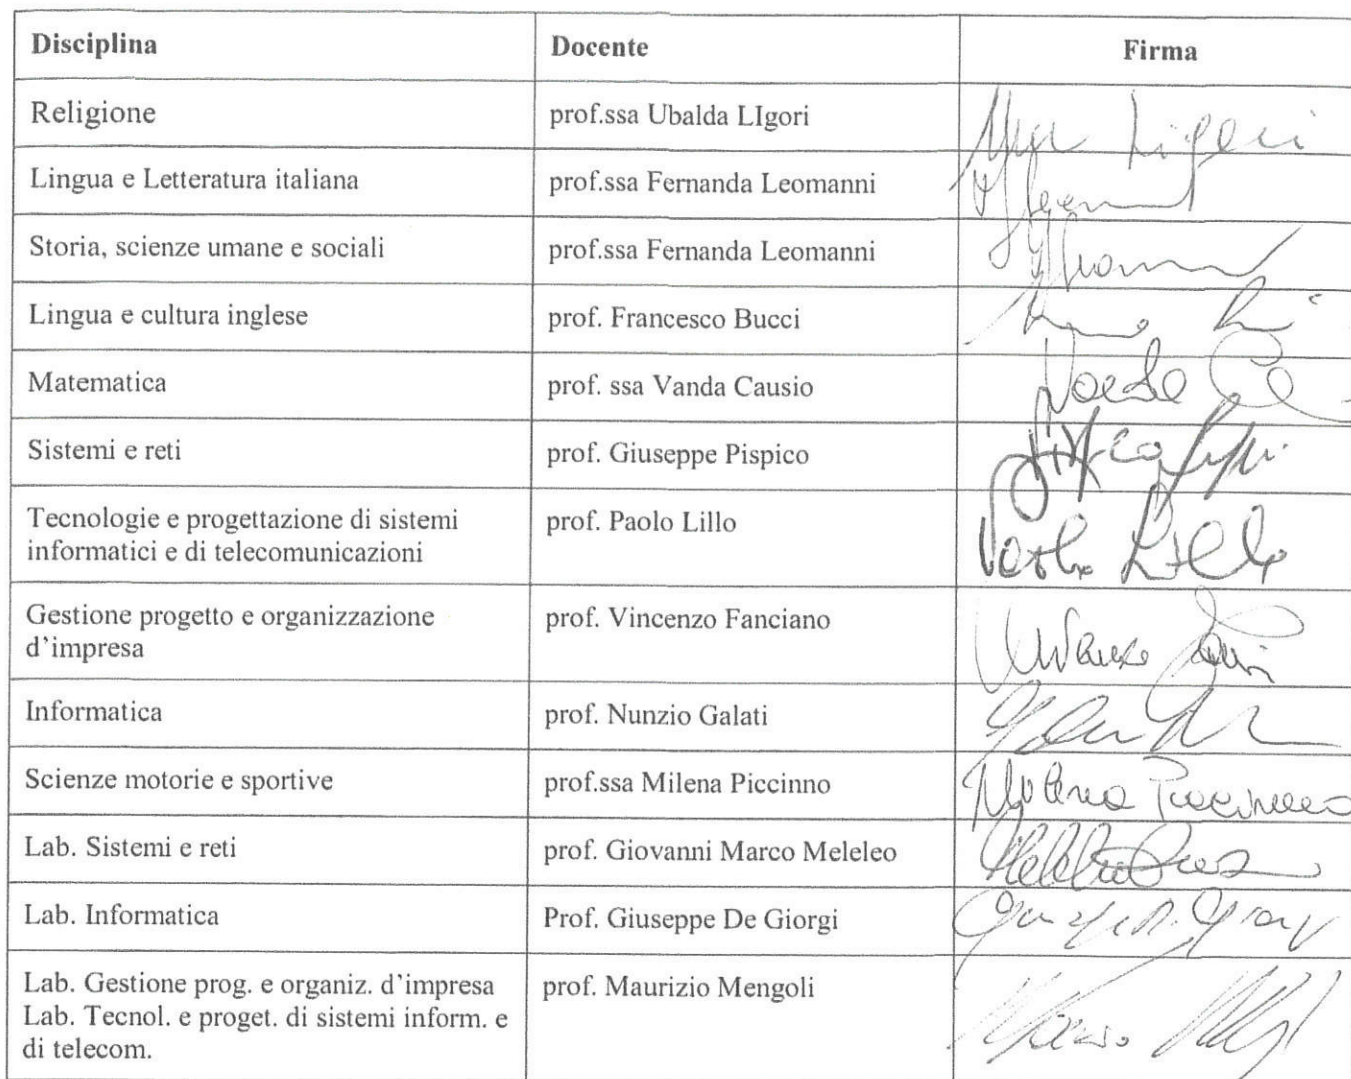 Disciplina Docente Firma
Religione prof.ssa Ubalda LIgori
Lingua e Letteratura italiana prof.ssa Fernanda Leomanni
Storia, scienze umane e sociali prof.ssa Fernanda Leomanni
Lingua e cultura inglese prof. Francesco Bucci
Matematica prof. ssa Vanda Causio
Sistemi e reti prof. Giuseppe Pispico
Tecnologie e progettazione di sistemi prof. Paolo Lillo Paolo Lillo
informatici e di telecomunicazioni
Gestione progetto e organizzazione prof. Vincenzo Fanciano
d’impresa
Informatica prof. Nunzio Galati
Scienze motorie e sportive prof.ssa Milena Piccinno Milena Piccinno
Lab. Sistemi e reti prof. Giovanni Marco Meleleo
Lab. Informatica Prof. Giuseppe De Giorgi
Lab. Gestione prog. e organiz. d’impresa prof. Maurizio Mengoli
Lab. Tecnol. e proget. di sistemi inform. e
di telecom.